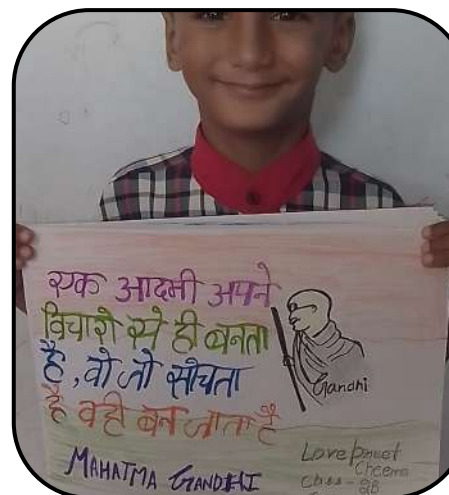 एक आदमी अपने
विचारो से ही बनता
है, वो जो सोचता
है वही बन जाता है
Gandhi
MAHATMA GANDHI
Lovepreet
Cheema
class - 9B